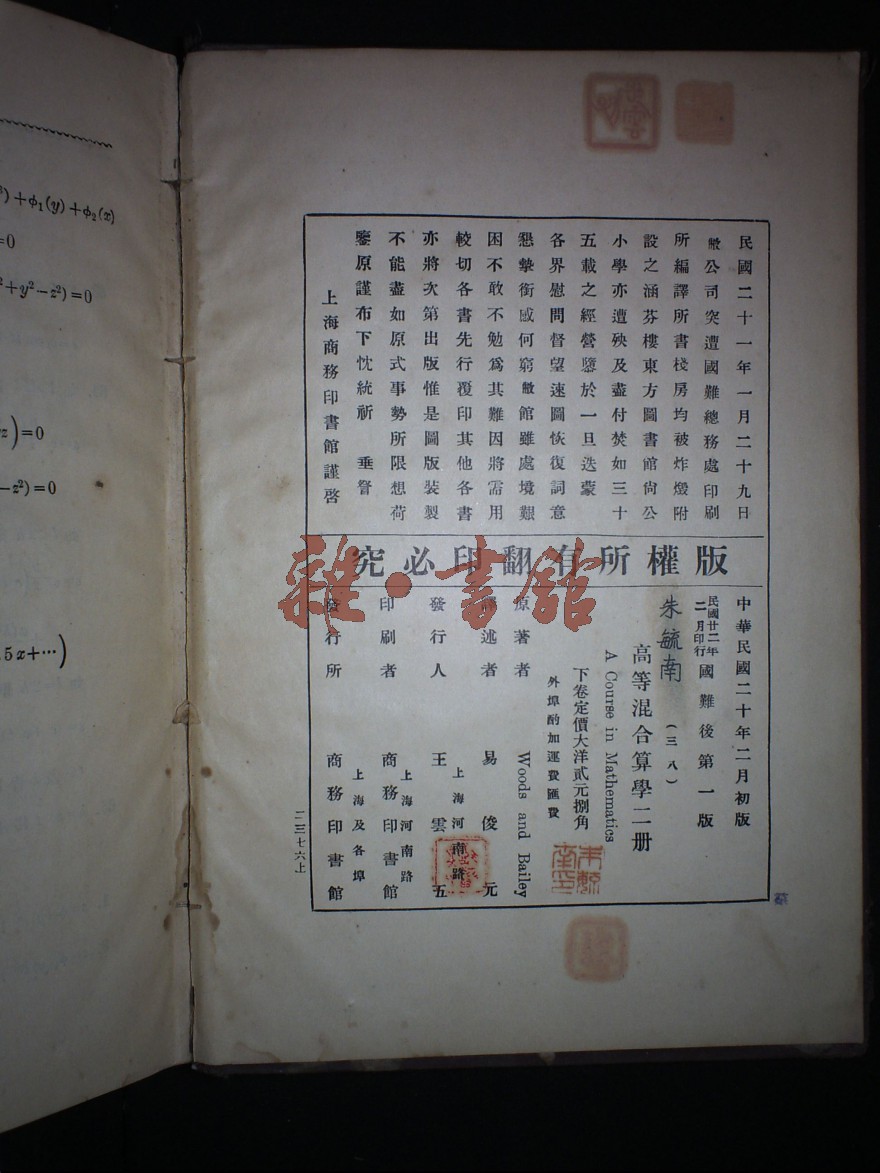 )+ϕ₁(y)+ϕ₂(x)
=0
+y²−z²)=0
)=0
−z²)=0
5x+⋯)
民國二十一年一月二十九日
敝公司突遭國難總務處印刷
所編譯所書棧房均被炸燬附
設之涵芬樓東方圖書館尙公
小學亦遭殃及盡付焚如三十
五載之經營隳於一旦迭蒙
各界慰問督望速圖恢復詞意
懇摯銜感何窮敝館雖處境艱
困不敢不勉爲其難因將需用
較切各書先行覆印其他各書
亦將次第出版惟是圖版裝製
不能盡如原式事勢所限想荷
鑒原謹布下忱統祈 垂詧
上海商務印書館謹啓
版權所有翻印必究
中華民國二十年二月初版
民國廿二年二月印行 國難後第一版
(三八)
朱毓南
高等混合算學二册
A Course in Mathematics
下卷定價大洋貳元捌角
外埠酌加運費匯費
原著者 Woods and Bailey
譯述者 易俊元
發行人 上海河南路 王雲五
印刷者 上海河南路 商務印書館
發行所 上海及各埠 商務印書館
二三七六上
雜·書館